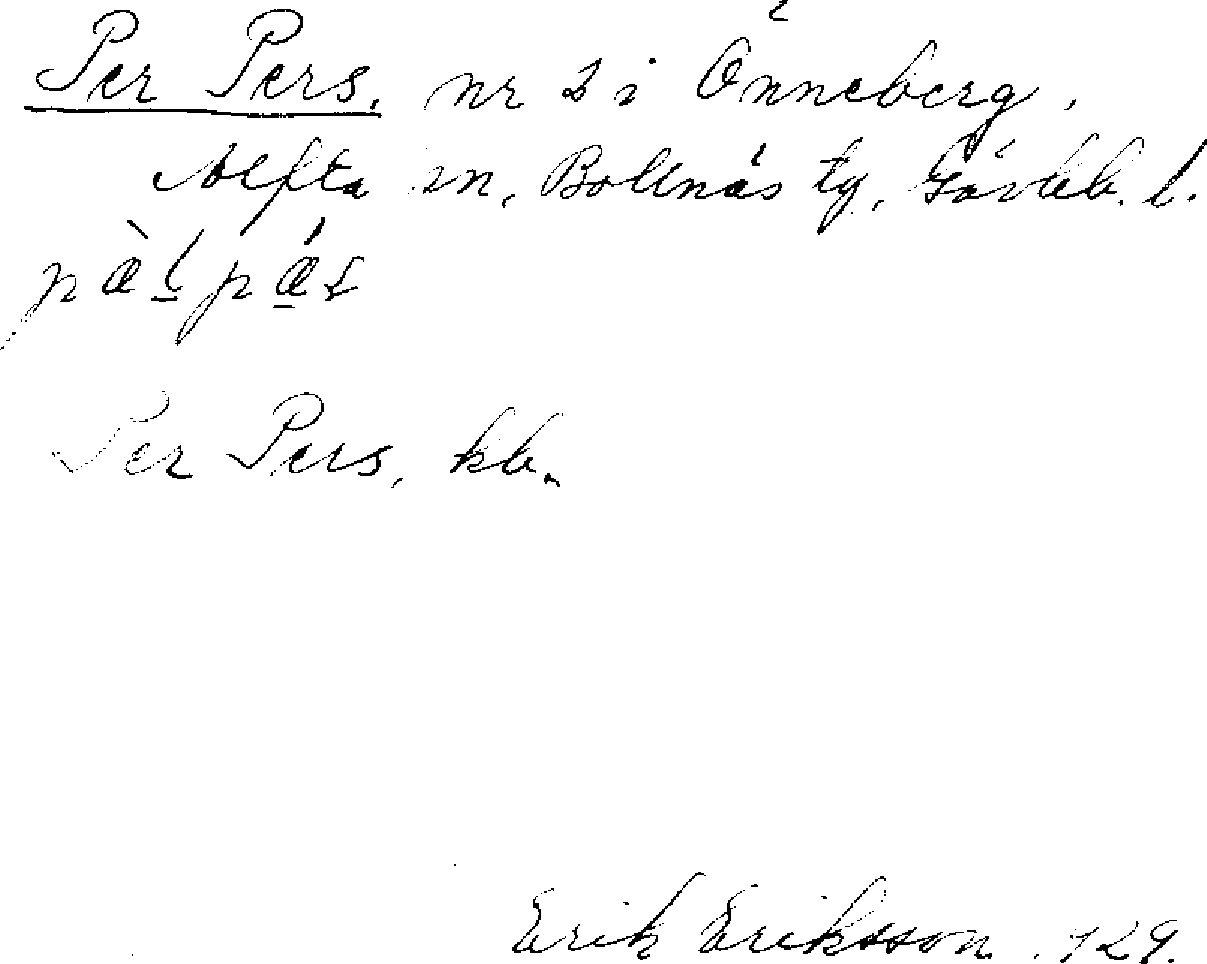 Per Pers, nr 2 i Önneberg,
Alfta sn, Bollnäs tg, Gävleb. l.
Per Pers, kb.
Erik Eriksson. 129.